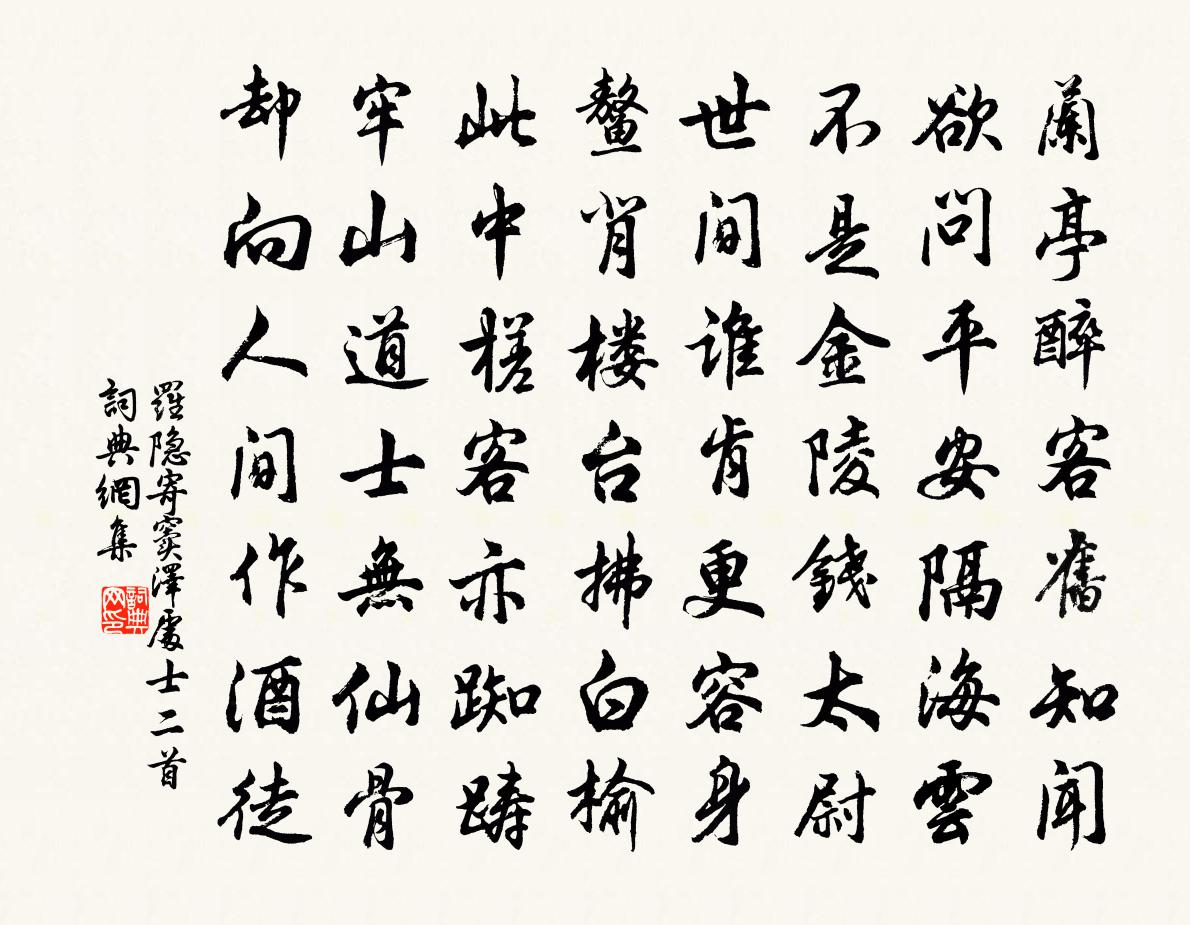 蘭亭醉客舊知聞
欲問平安隔海雲
不是金陵錢太尉
世間誰肯更容身
鼇背楼台拂白榆
此中槎客亦踟躊
牢山道士無仙骨
却向人間作酒徒
羅隐寄竇澤處士二首
詞典網集
詞典网印